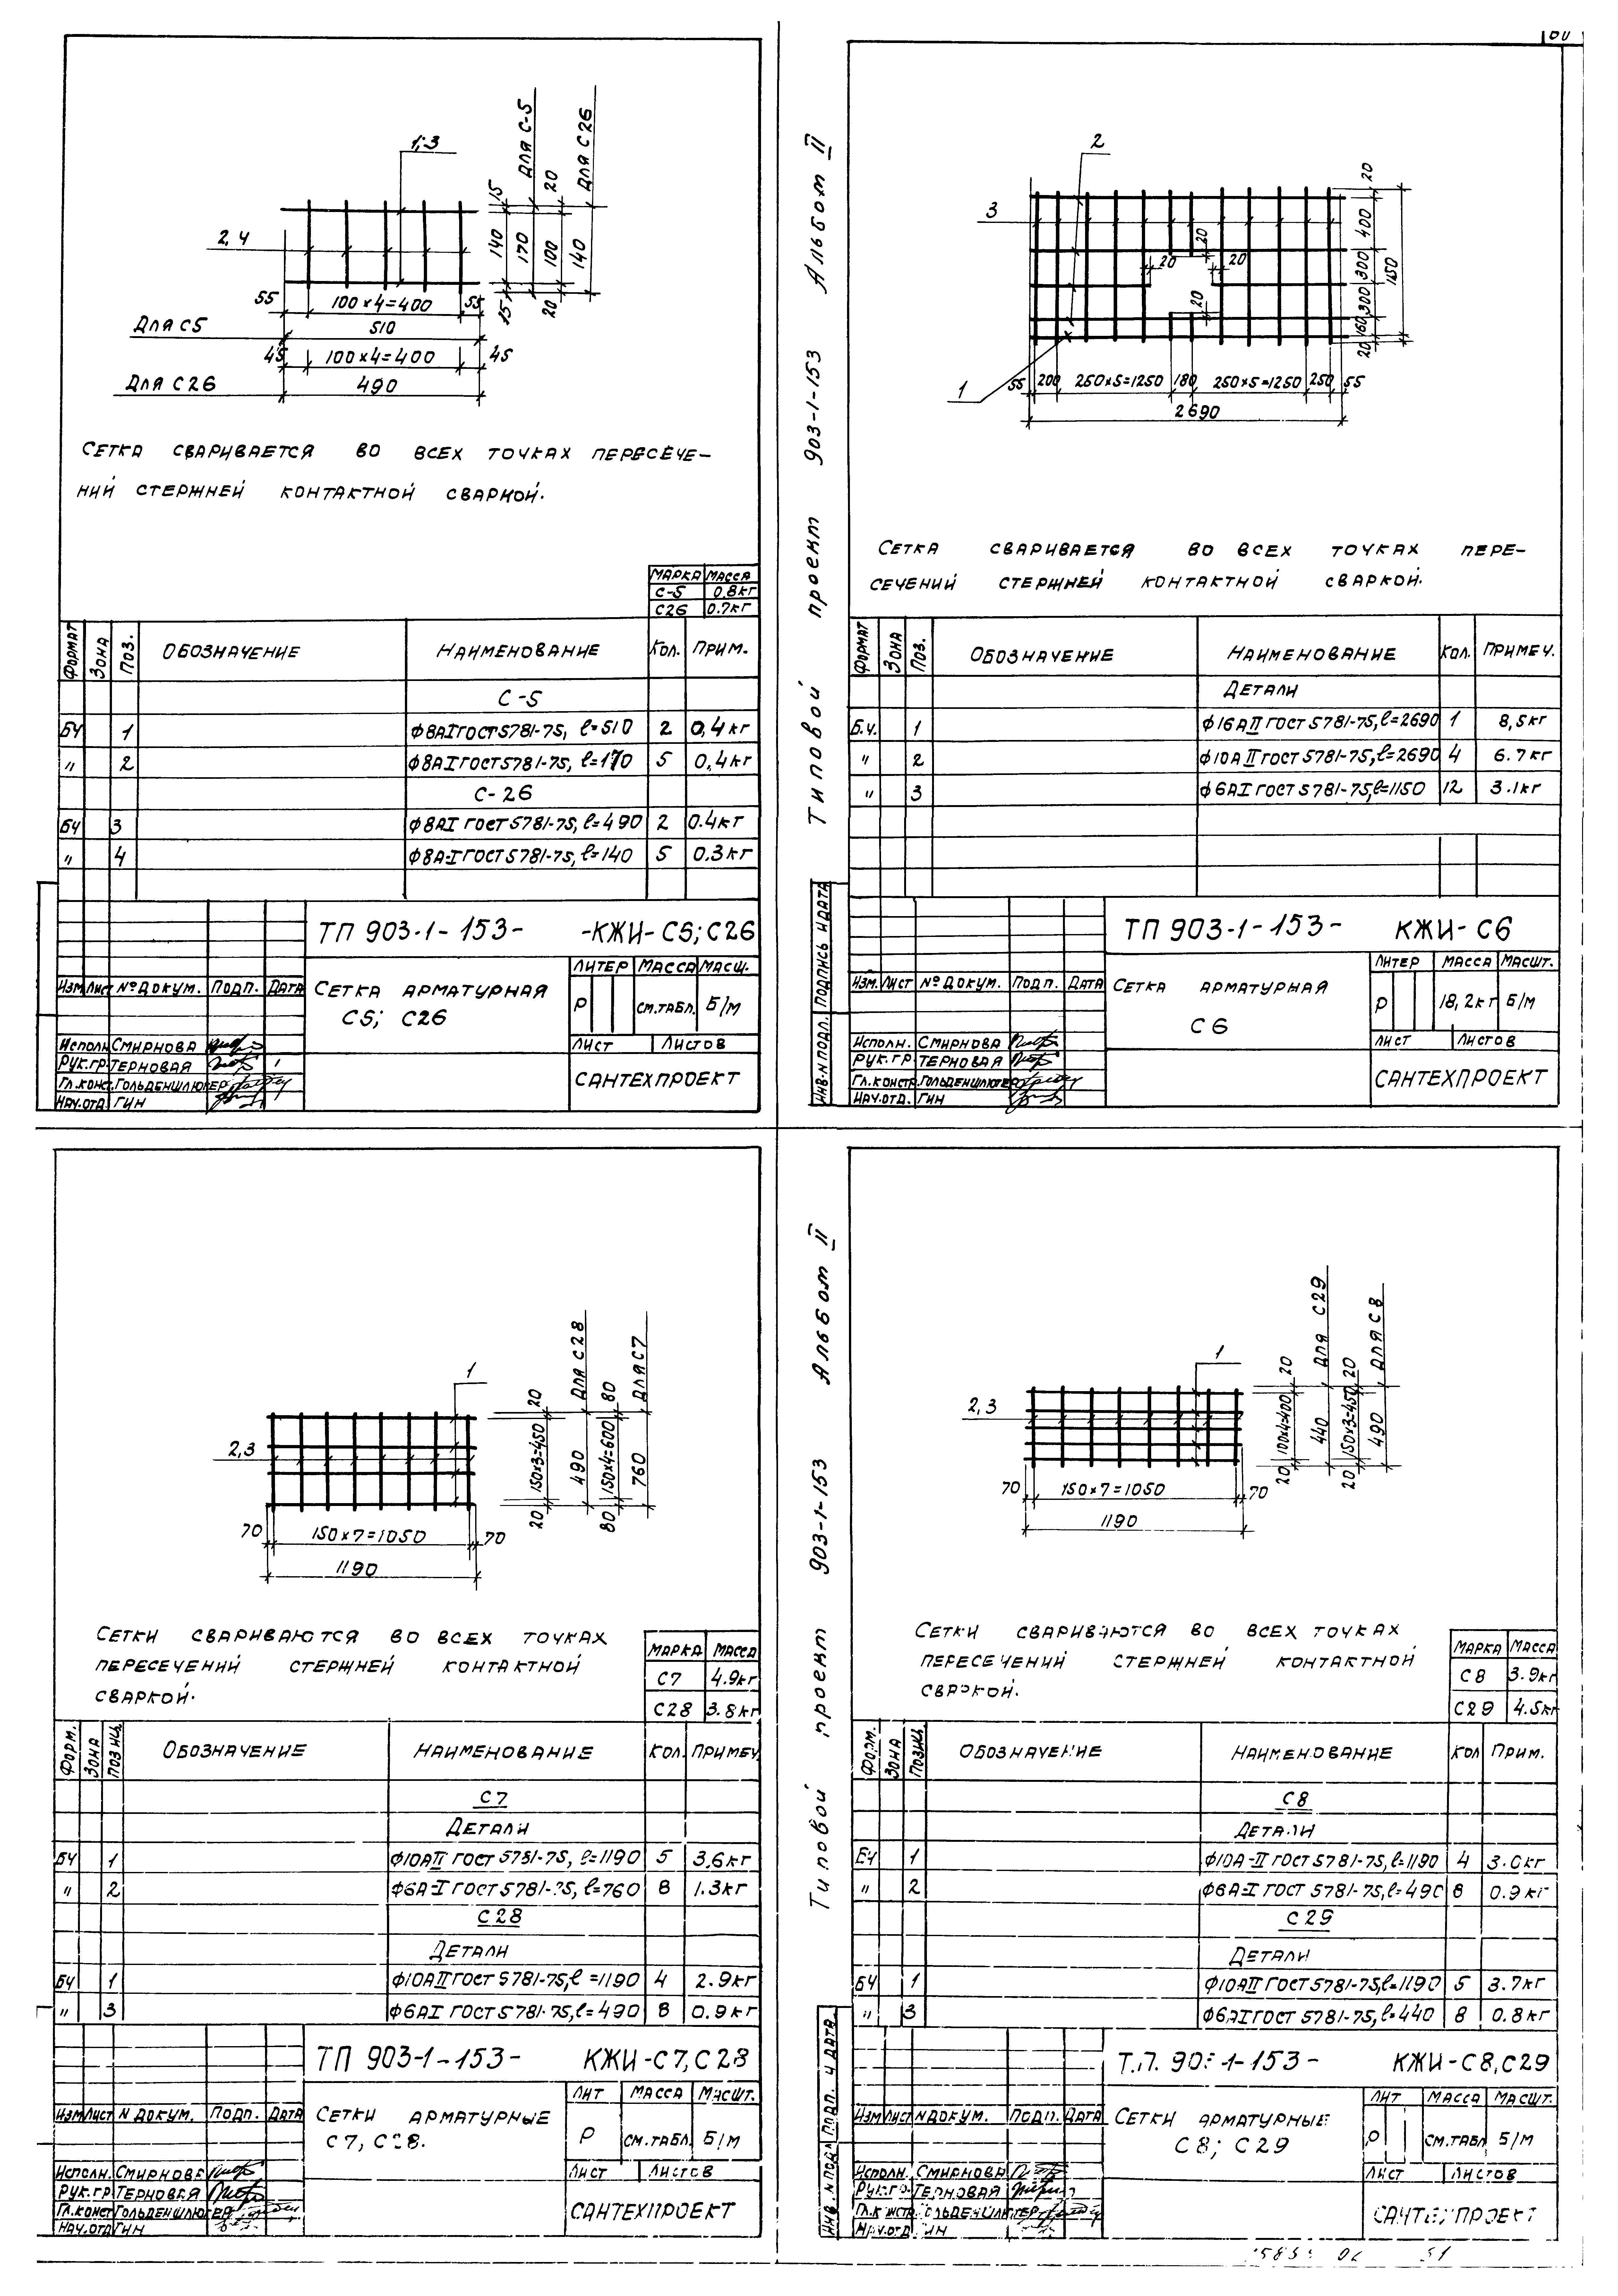 1;3
2,4
15
140
25
170
ДЛЯ С-5
20
100
20
140
ДЛЯ С26
55
100×4=400
55
ДЛЯ С5
510
45
100×4=400
45
ДЛЯ С26
490
СЕТКА СВАРИВАЕТСЯ ВО ВСЕХ ТОЧКАХ ПЕРЕСЕЧЕ-
НИЙ СТЕРЖНЕЙ КОНТАКТНОЙ СВАРКОЙ.
МАРКА МАССА
С-5 0.8кг
С26 0.7кг
ФОРМАТ ЗОНА ПОЗ. ОБОЗНАЧЕНИЕ НАИМЕНОВАНИЕ КОЛ. ПРИМ.
С-5
БЧ 1 Ф8АI ГОСТ 5781-75, ℓ=510 2 0,4кг
" 2 Ф8АI ГОСТ 5781-75, ℓ=170 5 0,4кг
С-26
БЧ 3 Ф8АI ГОСТ 5781-75, ℓ=490 2 0.4кг
" 4 Ф8А-I ГОСТ 5781-75, ℓ=140 5 0.3кг
ТП 903-1-153- -КЖИ-С5; С26
ИЗМ. ЛИСТ №ДОКУМ. ПОДП. ДАТА
СЕТКА АРМАТУРНАЯ
С5; С26
ЛИТЕР МАССА МАСШ.
Р СМ.ТАБЛ. Б/М
ЛИСТ ЛИСТОВ
ИСПОЛН. СМИРНОВА
РУК.ГР. ТЕРНОВАЯ
ГЛ.КОНСТ. ГОЛЬДЕНШЛЮГЕР
НАЧ.ОТД. ГИН
САНТЕХПРОЕКТ
Типовой проект 903-1-153 Альбом II
2
3
1
20
20
20
20
20
400
300
300
160
20
1150
55 200 250×5=1250 180 250×5=1250 250 55
2690
СЕТКА СВАРИВАЕТСЯ ВО ВСЕХ ТОЧКАХ ПЕРЕ-
СЕЧЕНИЙ СТЕРЖНЕЙ КОНТАКТНОЙ СВАРКОЙ.
ФОРМАТ ЗОНА ПОЗ. ОБОЗНАЧЕНИЕ НАИМЕНОВАНИЕ КОЛ. ПРИМЕЧ.
ДЕТАЛИ
Б.Ч. 1 Ф16АII ГОСТ 5781-75, ℓ=2690 1 8,5кг
" 2 Ф10АII ГОСТ 5781-75, ℓ=2690 4 6.7кг
" 3 Ф6АI ГОСТ 5781-75, ℓ=1150 12 3.1кг
ИНВ.N ПОДЛ. ПОДПИСЬ И ДАТА
ТП 903-1-153- КЖИ-С6
ИЗМ. ЛИСТ №ДОКУМ. ПОДП. ДАТА
СЕТКА АРМАТУРНАЯ
С6
ЛИТЕР МАССА МАСШТ.
Р 18,2кг Б/М
ЛИСТ ЛИСТОВ
ИСПОЛН. СМИРНОВА
РУК.ГР ТЕРНОВАЯ
ГЛ.КОНСТР. ГОЛЬДЕНШЛЮГЕР
НАЧ.ОТД. ГИН
САНТЕХПРОЕКТ
1
2,3
20
150×3=450
20
490
ДЛЯ С28
80
150×4=600
80
760
ДЛЯ С7
70 150×7=1050 70
1190
СЕТКИ СВАРИВАЮТСЯ ВО ВСЕХ ТОЧКАХ
ПЕРЕСЕЧЕНИЙ СТЕРЖНЕЙ КОНТАКТНОЙ
СВАРКОЙ.
МАРКА МАССА
С7 4.9кг
С28 3.8кг
ФОРМ. ЗОНА ПОЗИЦ. ОБОЗНАЧЕНИЕ НАИМЕНОВАНИЕ КОЛ. ПРИМЕЧ
С7
ДЕТАЛИ
БЧ 1 Ф10АII ГОСТ 5781-75, ℓ=1190 5 3.6кг
" 2 Ф6А-I ГОСТ 5781-75, ℓ=760 8 1.3кг
С28
ДЕТАЛИ
БЧ 1 Ф10АII ГОСТ 5781-75, ℓ=1190 4 2.9кг
" 3 Ф6АI ГОСТ 5781-75, ℓ=490 8 0.9кг
ТП 903-1-153- КЖИ-С7, С28
ИЗМ ЛИСТ N ДОКУМ. ПОДП. ДАТА
СЕТКИ АРМАТУРНЫЕ
С7, С28.
ЛИТ МАССА МАСШТ.
Р СМ.ТАБЛ. Б/М
ЛИСТ ЛИСТОВ
ИСПОЛН. СМИРНОВА
РУК.ГР ТЕРНОВАЯ
ГЛ.КОНСТ ГОЛЬДЕНШЛЮГЕР
НАЧ.ОТД ГИН
САНТЕХПРОЕКТ
Типовой проект 903-1-153 Альбом II
1
2,3
20
100×4=400
20
440
ДЛЯ С29
20
150×3=450
20
490
ДЛЯ С8
70 150×7=1050 70
1190
СЕТКИ СВАРИВАЮТСЯ ВО ВСЕХ ТОЧКАХ
ПЕРЕСЕЧЕНИЙ СТЕРЖНЕЙ КОНТАКТНОЙ
СВАРКОЙ.
МАРКА МАССА
С8 3.9кг
С29 4.5кг
ФОРМ. ЗОНА ПОЗИЦ. ОБОЗНАЧЕНИЕ НАИМЕНОВАНИЕ КОЛ ПРИМ.
С8
ДЕТАЛИ
БЧ 1 Ф10А-II ГОСТ 5781-75, ℓ=1190 4 3.0кг
" 2 Ф6А-I ГОСТ 5781-75, ℓ=490 8 0.9кг
С29
ДЕТАЛИ
БЧ 1 Ф10АII ГОСТ 5781-75, ℓ=1190 5 3.7кг
" 3 Ф6АI ГОСТ 5781-75, ℓ=440 8 0.8кг
ИНВ.N ПОДЛ ПОДП. И ДАТА
Т.П. 903-1-153- КЖИ-С8, С29
ИЗМ ЛИСТ N ДОКУМ. ПОДП. ДАТА
СЕТКИ АРМАТУРНЫЕ
С8; С29
ЛИТ МАССА МАСШТ.
Р СМ.ТАБЛ Б/М
ЛИСТ ЛИСТОВ
ИСПОЛН. СМИРНОВА
РУК.ГР ТЕРНОВАЯ
ГЛ.КОНСТ. ГОЛЬДЕНШЛЮГЕР
НАЧ.ОТД ГИН
САНТЕХПРОЕКТ